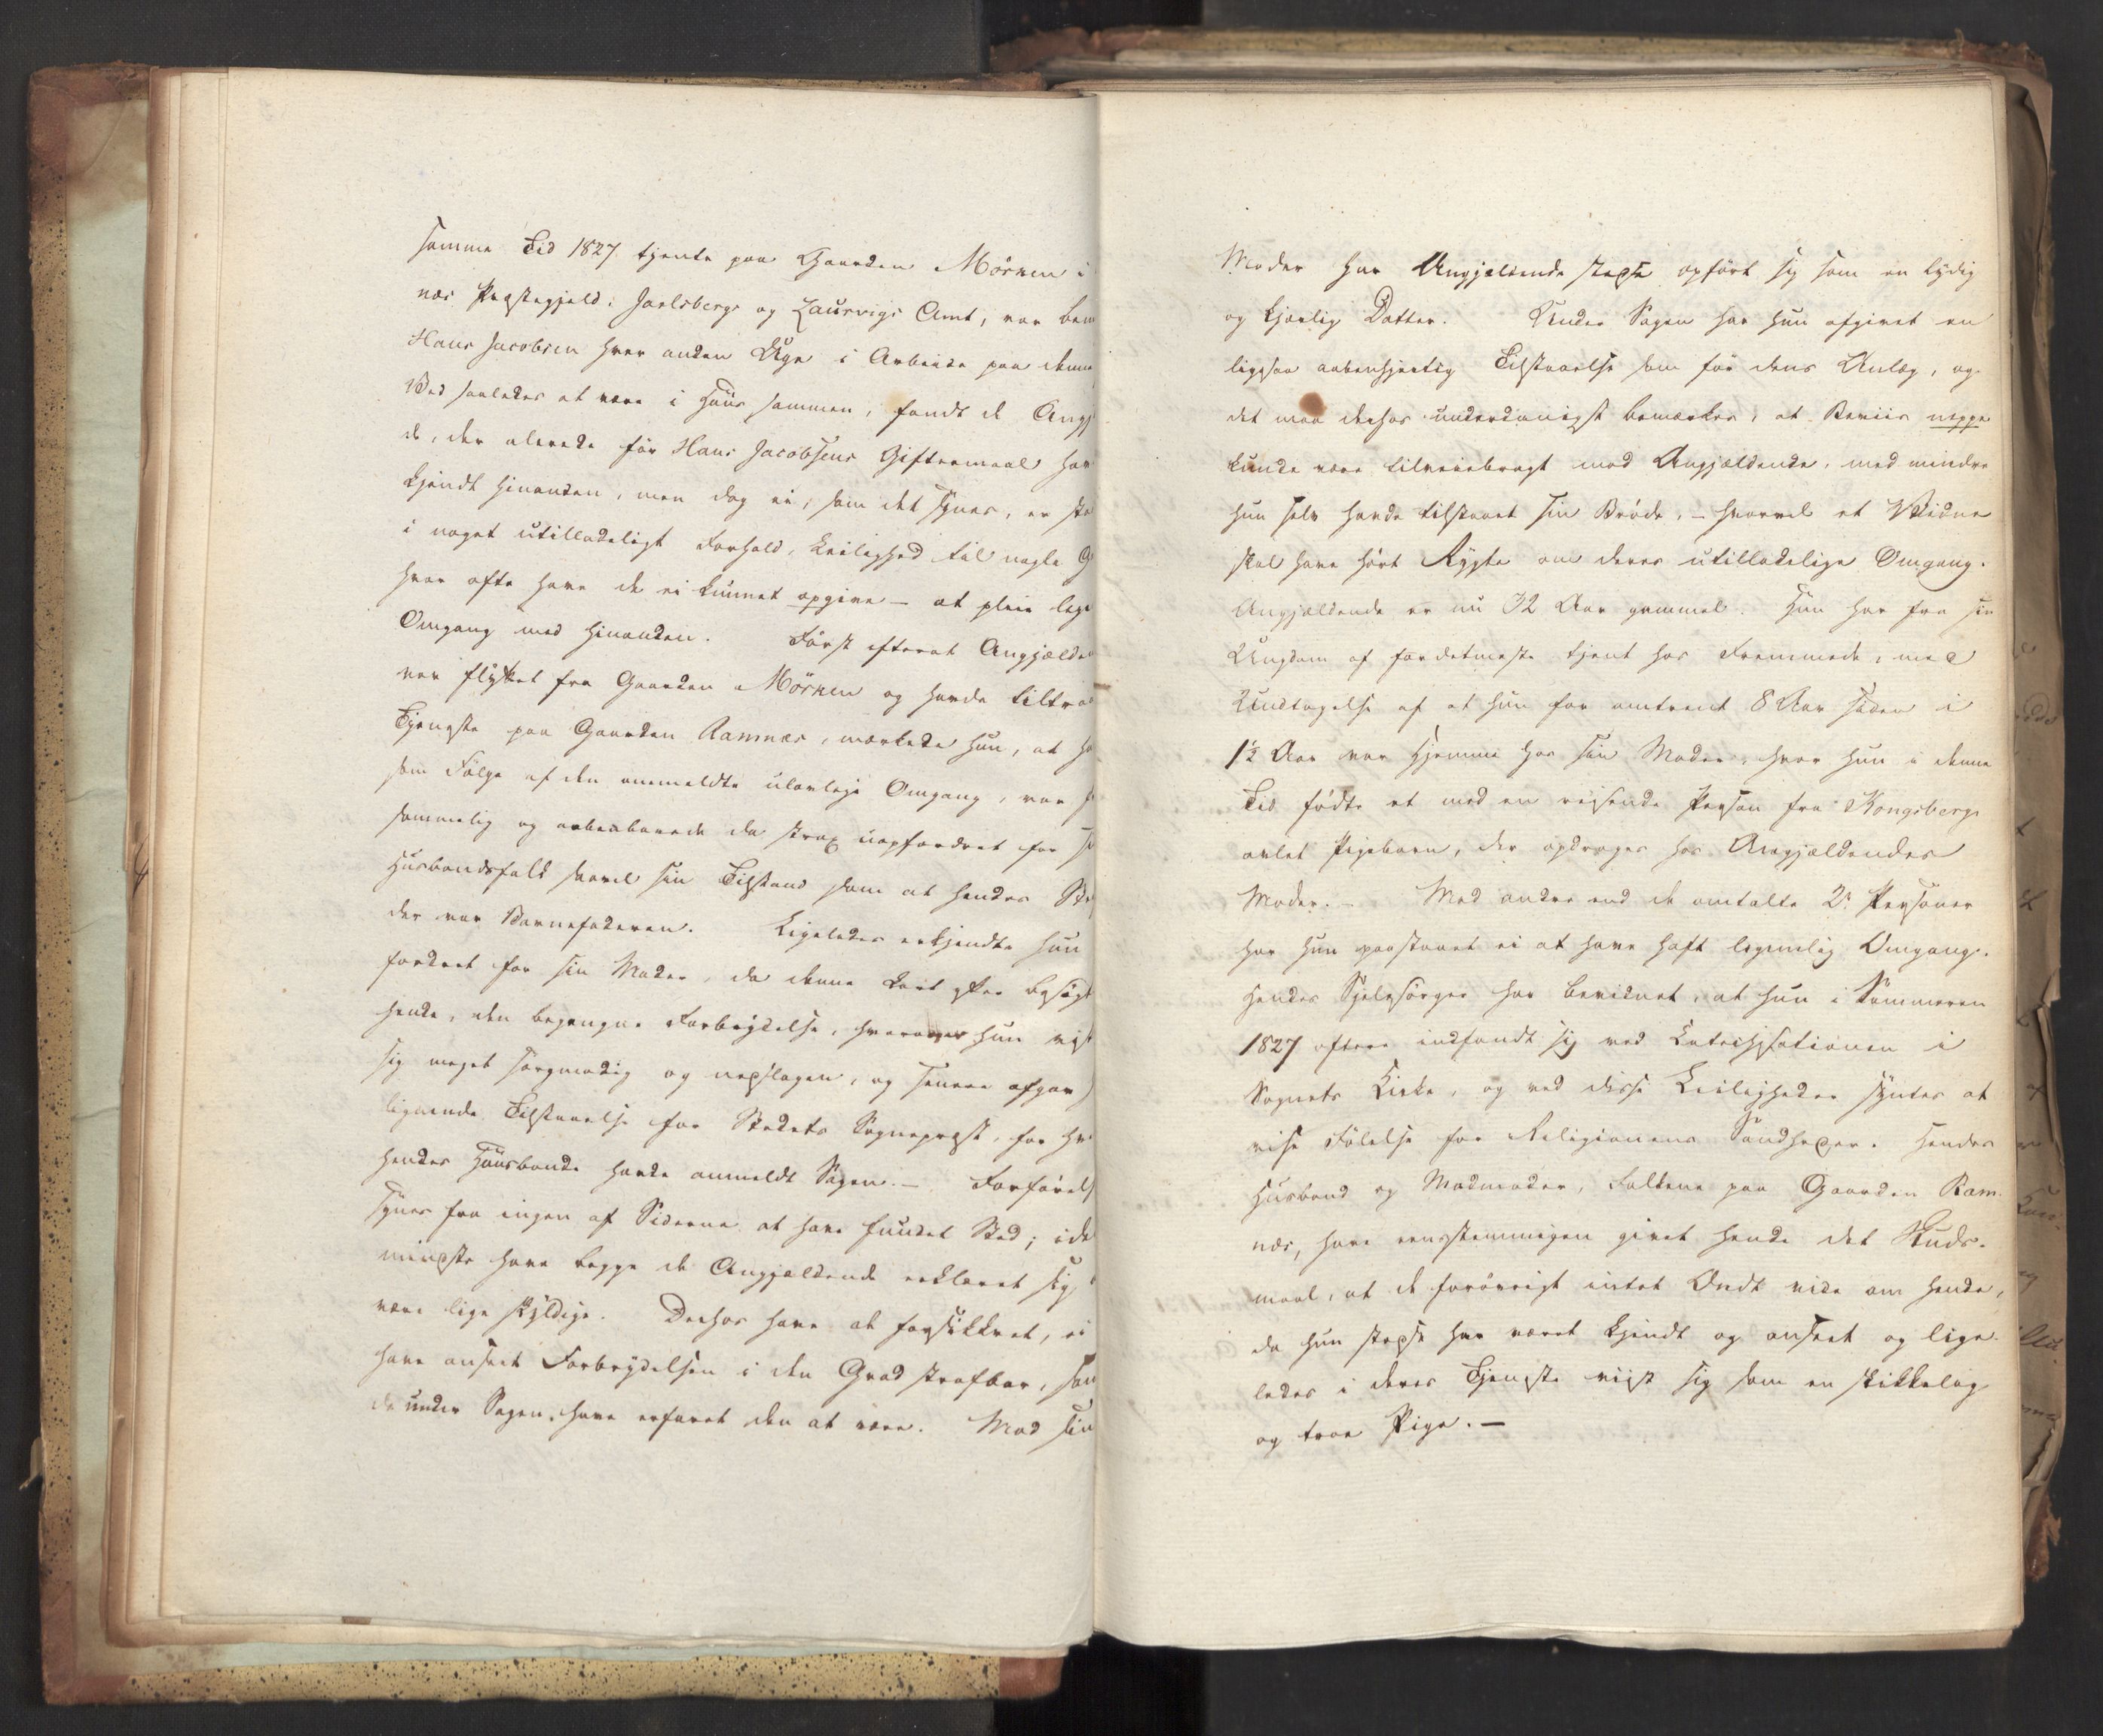 samme Tid 1827 tjente paa Gaarden Mörken i
næs Præstegjeld, Jarlsbergs og Laurvigs Amt, var
Hans Jacobsen hver anden Uge i Arbeide paa denne
Ved saaledes at være i Huus sammen, fandt de Angj
de, der alerede før Hans Jacobsens Giftermaal hav
kjendt hinanden, men dog ei, som det synes, er
i noget utilladeligt Forhold, Leilighed til nogle G
hvor ofte have de ei kunnet opgive — at pleie lege
Omgang med hinanden. Först efterat Angjælde
var flyttet fra Gaarden Mörken og havde tiltraa
Tjeneste paa Gaarden Ramnæs, mærkede hun, at h
som Fölge af den anmeldte ulovlige Omgang, var f
sommelig og aabenbarede da strax uopfordret for s
Husbondsfolk saavel sin Tilstand som at hendes St
der var Barnefaderen. Ligeledes erkjendte hun
fordret for sin Moder, da denne kort efter besögt
hende, den begangne Forbrydelse, hvorover hun viist
sig meget sorgmodig og nedslagen, og senere afgav
lignende Tilstaaelse for Stedets Sognepræst, for hv
hendes Huusbonde havde anmeldt Sagen. — Forförels
synes fra ingen af Siderne at have fundet Sted; ide
mindste have begge de Angjældende erklæret sig
være lige skyldige. Derhos have de forsikkret, ei
have anseet Forbrydelsen i den Grad strafbar, som
de under Sagen have erfaret den at være. Mod sin
Moder har Angjældende stedse opfört sig som en lydig
og kjærlig Datter. Under Sagen har hun afgivet en
ligesaa aabenhjertig Tilstaaelse som før dens Anlæg, og
det maa derhos underdanigst bemærkes, at Beviis neppe
kunde være tilveiebragt mod Angjældende, med mindre
hun selv havde tilstaaet sin Bröde, — hvorvel et Vidne
skal have hört Rygte om deres utilladelige Omgang.
Angjældende er nu 32 Aar gammel. Hun har fra sin
Ungdom af fordetmeste tjent hos Fremmede, med
Undtagelse af at hun for omtrent 8 Aar siden i
1½ Aar var Hjemme hos sin Moder, hvor hun i denne
Tid födte et med en reisende Person fra Kongsberg
avlet Pigebarn, der opdrages hos Angjældendes
Moder. — Med andre end de omtalte 2de Personer
har hun paastaaet ei at have haft legemlig Omgang.
Hendes Sjelesörger har bevidnet, at hun i Sommeren
1827 oftere indfandt sig ved Catechisationen i
Sognets Kirke, og ved disse Leiligheder syntes at
vise Fölelse for Religionens Sandheder. Hendes
Husbond og Madmoder, Folkene paa Gaarden Ram-
næs, have eensstemmigen givet hende det Skuds-
maal, at de forövrigt intet Ondt vide om hende,
da hun stedse har været kjendt og anseet og lige-
ledes i deres Tjeneste viist sig som en skikkelig
og troe Pige. —